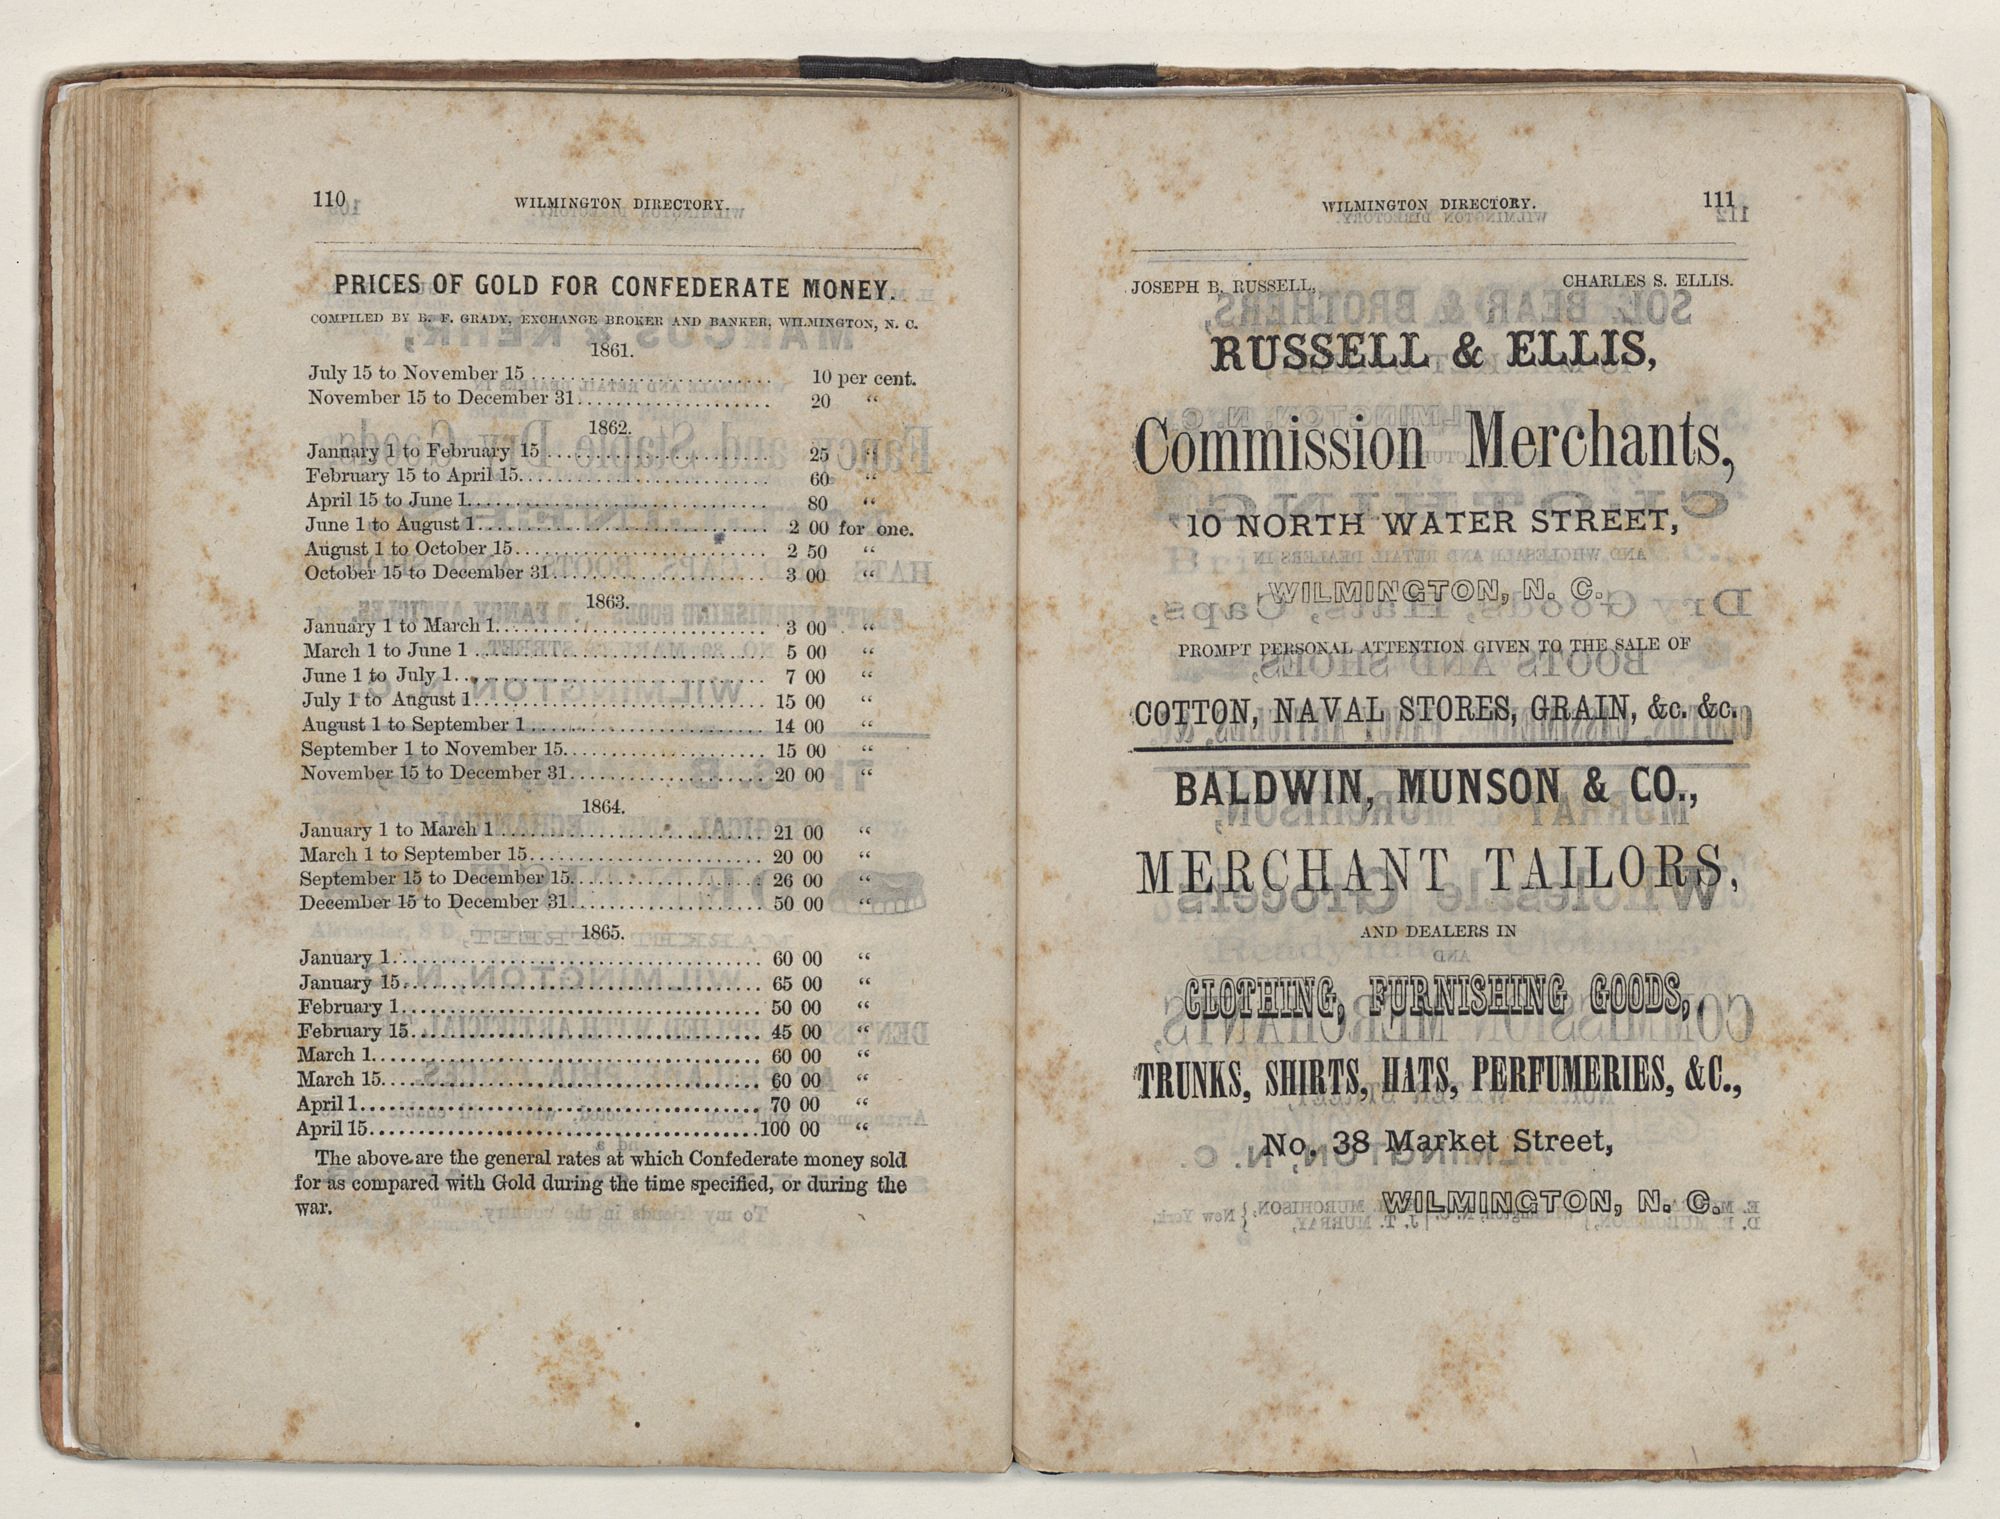 110 WILMINGTON DIRECTORY.
PRICES OF GOLD FOR CONFEDERATE MONEY.
COMPILED BY B. F. GRADY, EXCHANGE BROKER AND BANKER, WILMINGTON, N. C.
1861.
July 15 to November 15 ........................ 10 per cent.
November 15 to December 31.................... 20 “
1862.
January 1 to February 15 ....................... 25 “
February 15 to April 15......................... 60 “
April 15 to June 1.............................. 80 “
June 1 to August 1............................. 2 00 for one.
August 1 to October 15......................... 2 50 “
October 15 to December 31..................... 3 00 “
1863.
January 1 to March 1........................... 3 00 “
March 1 to June 1 ............................. 5 00 “
June 1 to July 1............................... 7 00 “
July 1 to August 1............................. 15 00 “
August 1 to September 1........................ 14 00 “
September 1 to November 15.................... 15 00 “
November 15 to December 31.................... 20 00 “
1864.
January 1 to March 1........................... 21 00 “
March 1 to September 15........................ 20 00 “
September 15 to December 15.................... 26 00 “
December 15 to December 31.................... 50 00 “
1865.
January 1...................................... 60 00 “
January 15..................................... 65 00 “
February 1..................................... 50 00 “
February 15.................................... 45 00 “
March 1........................................ 60 00 “
March 15....................................... 60 00 “
April 1........................................ 70 00 “
April 15.......................................100 00 “
The above are the general rates at which Confederate money sold
for as compared with Gold during the time specified, or during the
war.
WILMINGTON DIRECTORY. 111
JOSEPH B. RUSSELL, CHARLES S. ELLIS.
RUSSELL & ELLIS,
Commission Merchants,
10 NORTH WATER STREET,
WILMINGTON, N. C.
PROMPT PERSONAL ATTENTION GIVEN TO THE SALE OF
COTTON, NAVAL STORES, GRAIN, &c. &c.
BALDWIN, MUNSON & CO.,
MERCHANT TAILORS,
AND DEALERS IN
CLOTHING, FURNISHING GOODS,
TRUNKS, SHIRTS, HATS, PERFUMERIES, &C.,
No. 38 Market Street,
WILMINGTON, N. C.